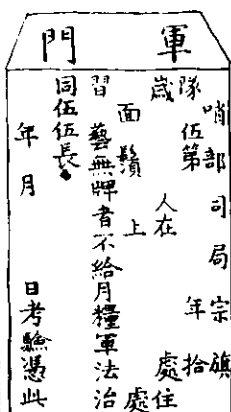 軍門
哨部司局宗旗
隊伍第 年拾
歲 人在 處住
面鬚 上 處
習藝無牌者不給月糧軍法治
同伍伍長
年月 日考驗憑此